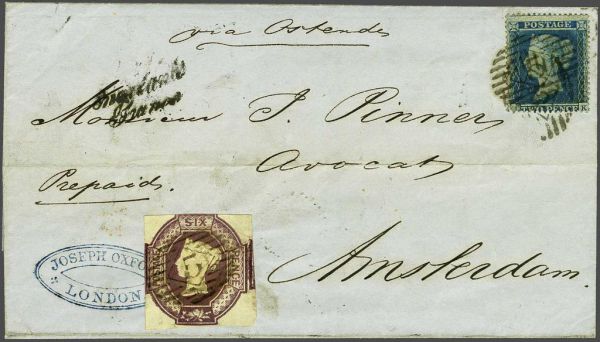 via Ostende
POSTAGE
TWO PENCE
K
Franco
Monsieur J. Pinner
Avocat
Prepaid.
Amsterdam.
JOSEPH OXFO
LONDON
SIX
PENCE